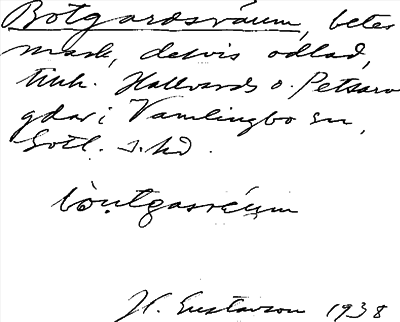 Botgardsråum, betes
mark, delvis odlad,
tillh. Hallvards o. Petsarve
gdar i Vamlingbo sn,
Gotl. s. hd.
H. Gustavson 1938